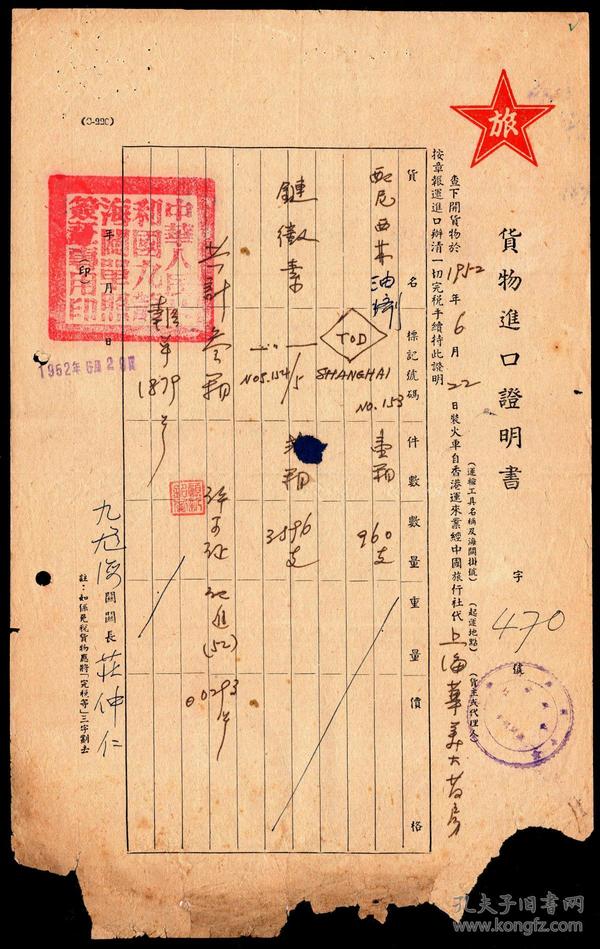 旅
(C-220)
貨物進口證明書
字 470 號
查下開貨物於1952年6月22日裝火車自香港運來業經中國旅行社代上海華美大药房
(運輸工具名稱及海關掛號)
(起運地點)
(貨主或代理人)
按章報運進口辦清一切完稅手續特此證明
貨名
標記號碼
件數
數量
重量
價格
配尼西林油剂
TOD
SHANGHAI
NO. 153
壹箱
960支
鏈黴素
NOS. 154/5
箱
3596支
共計叁箱
許可证
(52)
00293号
1879号
中華人民共和國九龍海關單證簽證專用印
年 月 日
(印)
1952年 6月 29日
九龙海關關長 莊仲仁
註:如係免稅貨物應將「完稅等」三字劃去
孔夫子旧书网
www.kongfz.com